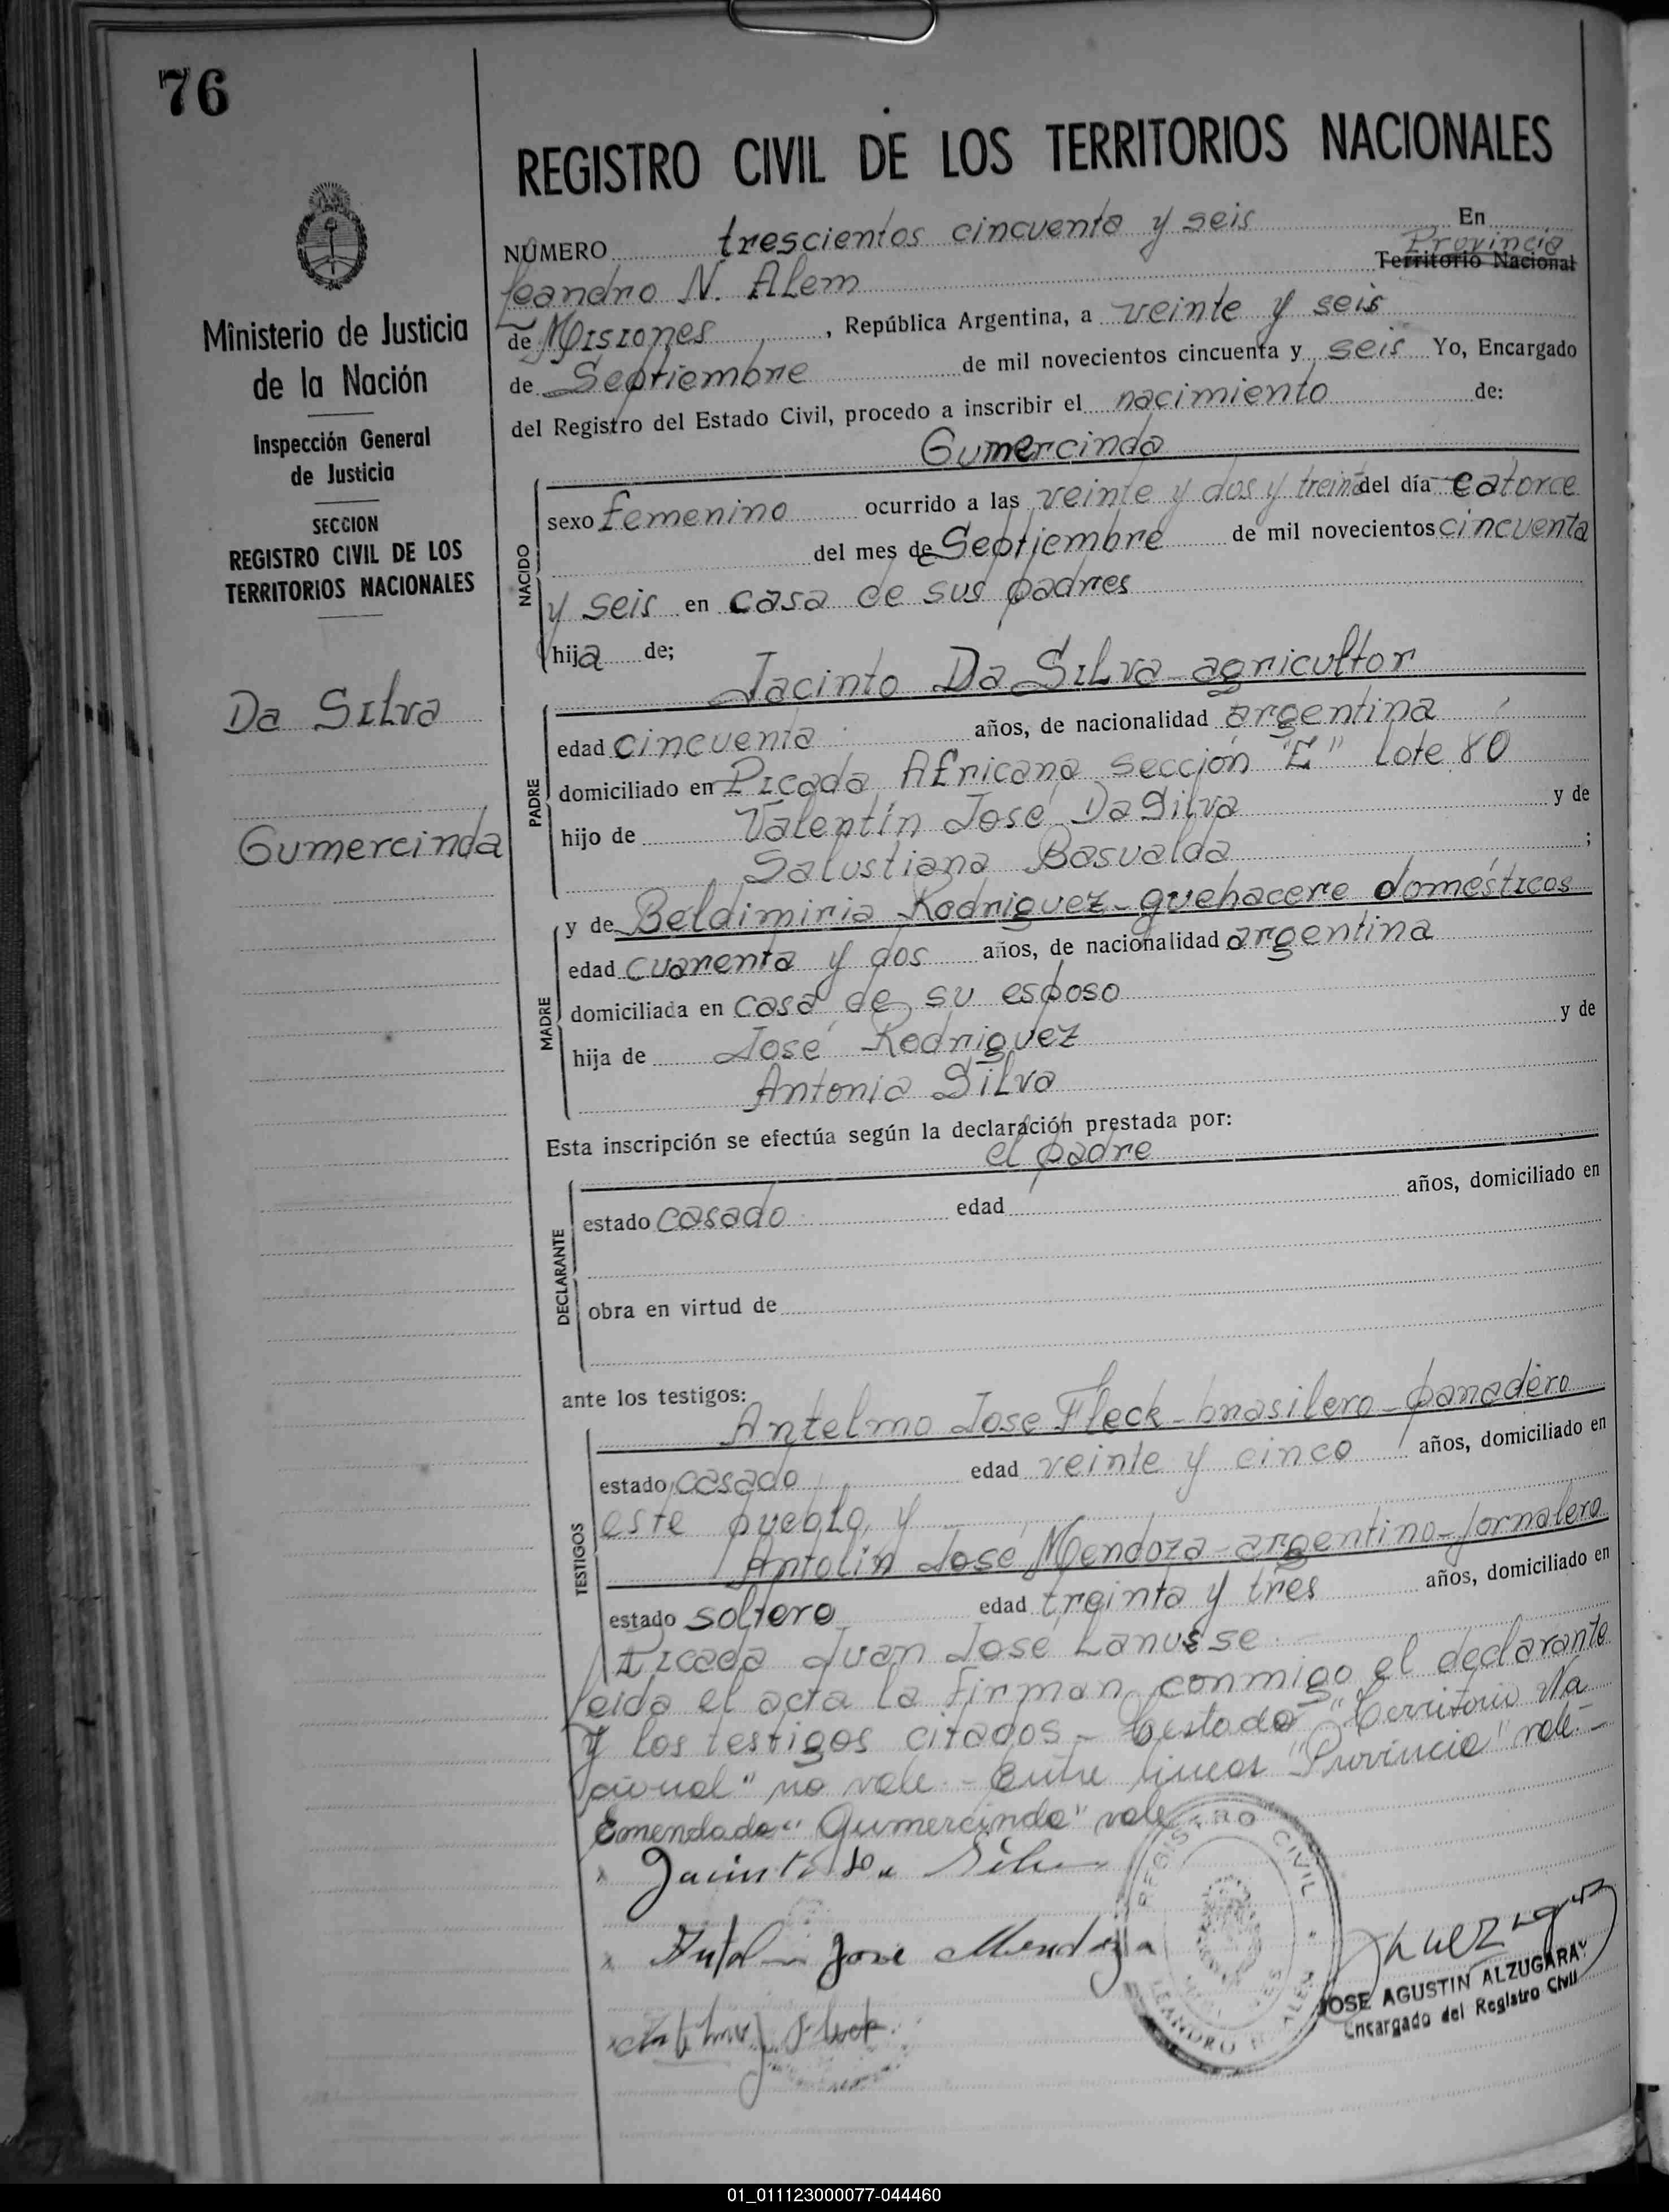 76
REGISTRO CIVIL DE LOS TERRITORIOS NACIONALES
Ministerio de Justicia
de la Nación
Inspección General
de Justicia
SECCION
REGISTRO CIVIL DE LOS
TERRITORIOS NACIONALES
Da Silva
Gumercinda
NÚMERO trescientos cincuenta y seis En
Provincia
Leandro N. Alem Territorio Nacional
de Misiones, República Argentina, a veinte y seis
de Septiembre de mil novecientos cincuenta y seis Yo, Encargado
del Registro del Estado Civil, procedo a inscribir el nacimiento de:
Gumercinda
NACIDO
sexo femenino ocurrido a las veinte y dos y treinta del día catorce
del mes de Septiembre de mil novecientos cincuenta
y seis en casa de sus padres
hija de;
Jacinto Da Silva - agricultor
PADRE
edad cincuenta años, de nacionalidad argentina
domiciliado en Picada Africana sección "E" lote 80
hijo de Valentín José Da Silva y de
Salustiana Basualda ;
y de Beldimiria Rodriguez - quehacere domésticos
MADRE
edad cuarenta y dos años, de nacionalidad argentina
domiciliada en casa de su esposo
hija de José Rodriguez y de
Antonia Silva
Esta inscripción se efectúa según la declaración prestada por:
el padre
DECLARANTE
estado casado edad años, domiciliado en
obra en virtud de
ante los testigos:
Antelmo Jose Fleck - brasilero - panadero
TESTIGOS
estado casado edad veinte y cinco años, domiciliado en
este pueblo, y
Antolin José Mendoza - argentino - jornalero
estado soltero edad treinta y tres años, domiciliado en
Picada Juan José Lanusse.
leida el acta la firman conmigo el declarante
y los testigos citados - Testado "Territorio Na
cional" no vale - Entre lineas "Provincia" vale. -
Emendado "Gumercinda" vale
Jacinto Da Silva
Antolin Jose Mendoza
REGISTRO CIVIL
LEANDRO N. ALEM
JOSE AGUSTIN ALZUGARAY
Encargado del Registro Civil
01_011123000077-044460